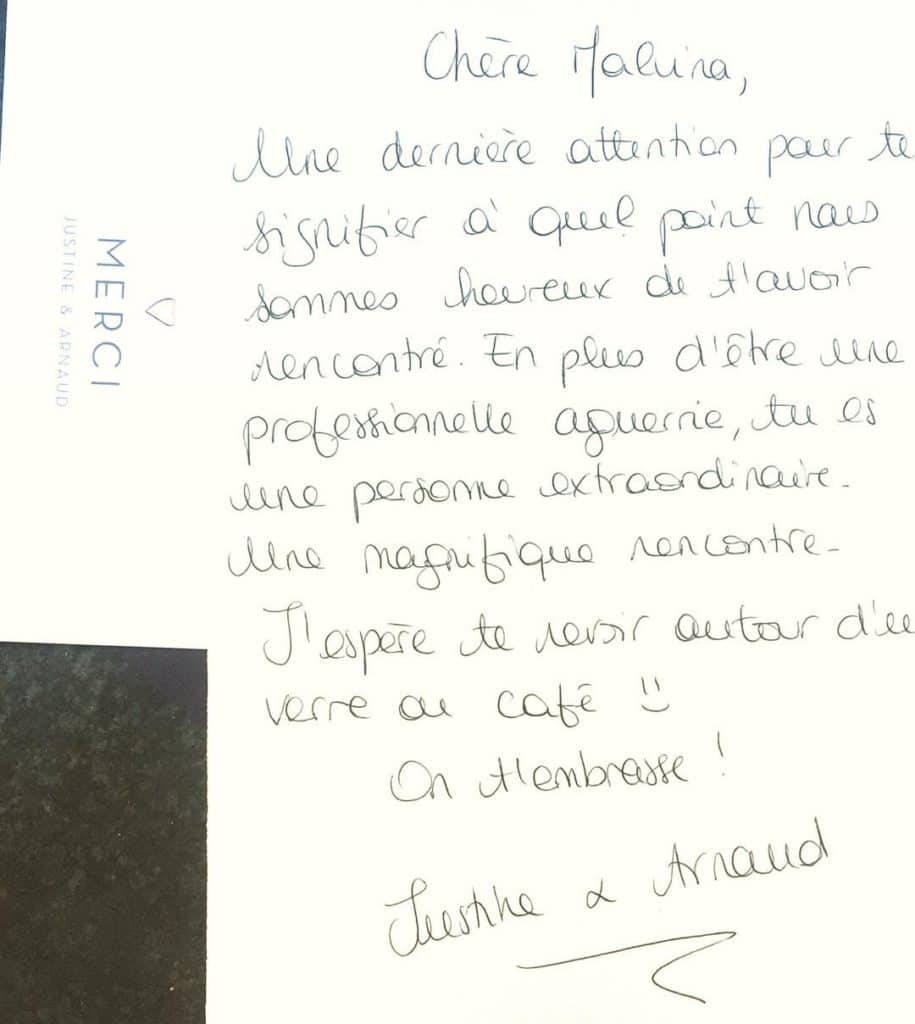 Chère Malvina,
Une dernière attention pour te
signifier à quel point nous
sommes heureux de t'avoir
rencontré. En plus d'être une
professionnelle aguerrie, tu es
une personne extraordinaire.
Une magnifique rencontre.
J'espère te revoir autour d'u
verre ou café :)
On t'embrasse !
Justine & Arnaud
MERCI
JUSTINE & ARNAUD